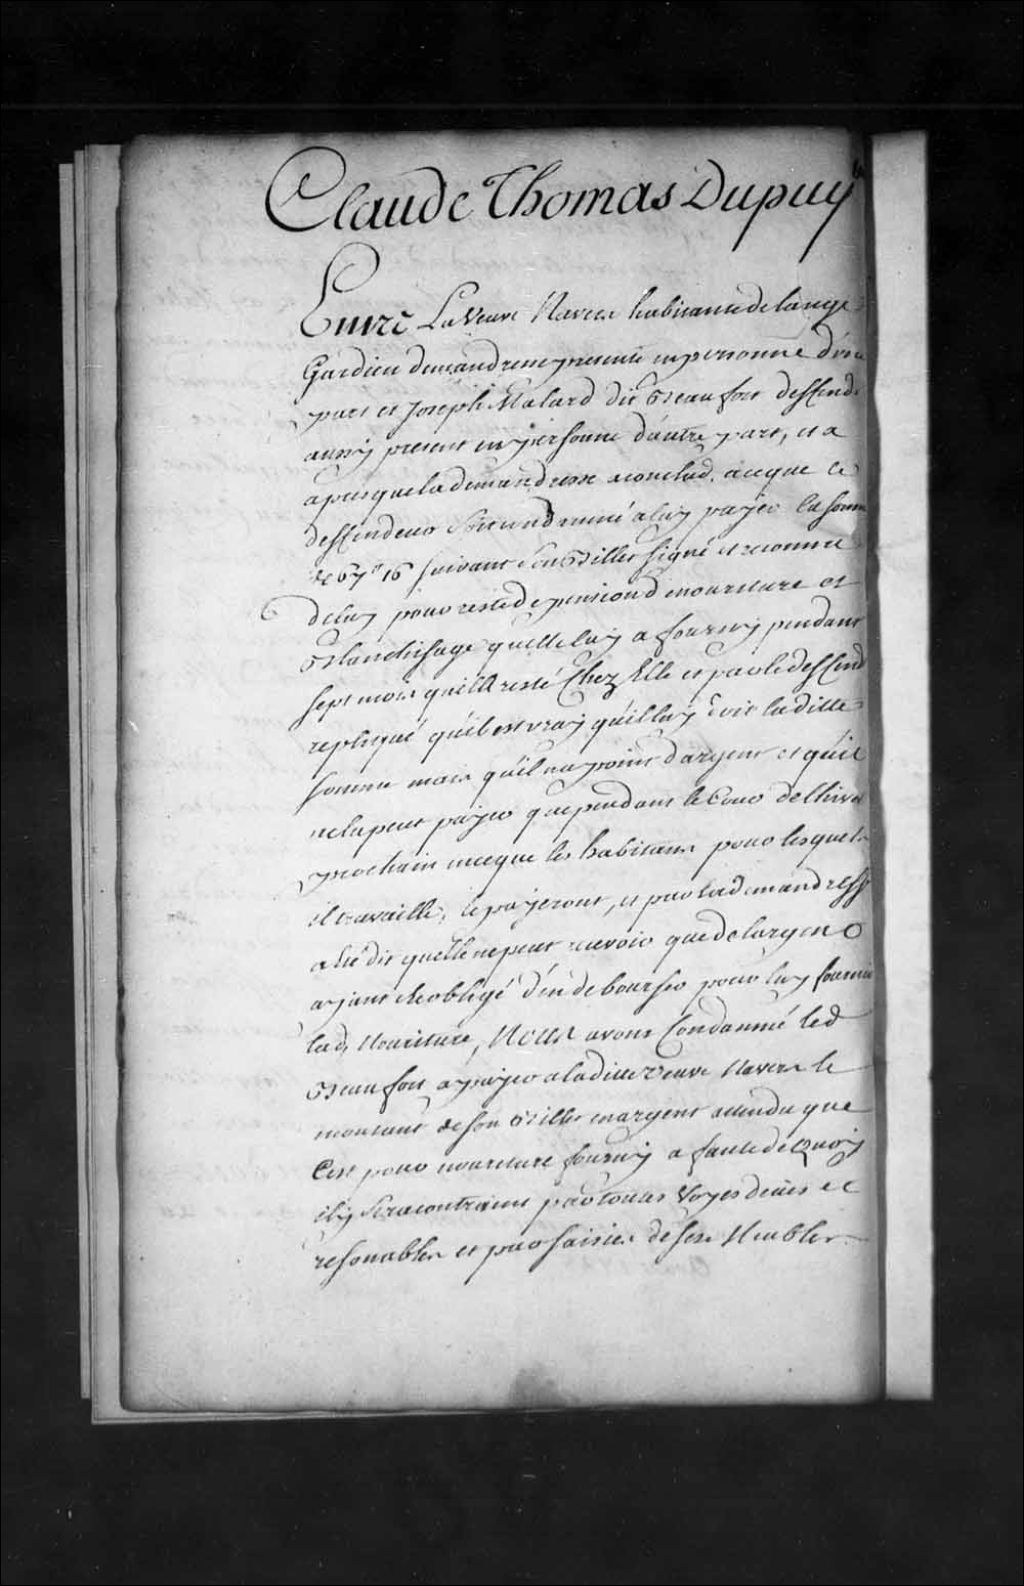 Claude Thomas Dupuy
Entre La Veuve Navers habitante de lange
Gardien demandresse presente en personne d'une
part et Joseph Malard dit Beaufort deffend.
aussy present en personne d'autre part, et a
apres que la demandresse a conclud, aceque le
deffendeur soit condamné a luy payer la somme
de 67# 16 suivant son Billet signé et reconnu
de luy pour reste de pension de nouriture et
Blanchissage quelle luy a fourny pendant
sept mois quil a resté Chez Elle et par le deffend
repliqué qu'il est vray qu'il luy doit laditte
somme mais qu'il na point d'argent et qu'il
ne la peut payer que pendant le Cour de lhiver
prochain inceque les habitans pour lesquels
il travaille, le payeront, et par la demandresse
a été dit quelle ne peut recevoir que de largent
ayant été obligé d'en debourser pour luy fournir
lad. Nouriture, Nous avons Condamné led
Beaufort a payer a laditte veuve Navers le
montant de son Billet en argent attendu que
Cest pour nouriture fourny a faute de quoy
il y sera contraint par toutes Voyes deües et
resonables et par saisies de ses Meubles